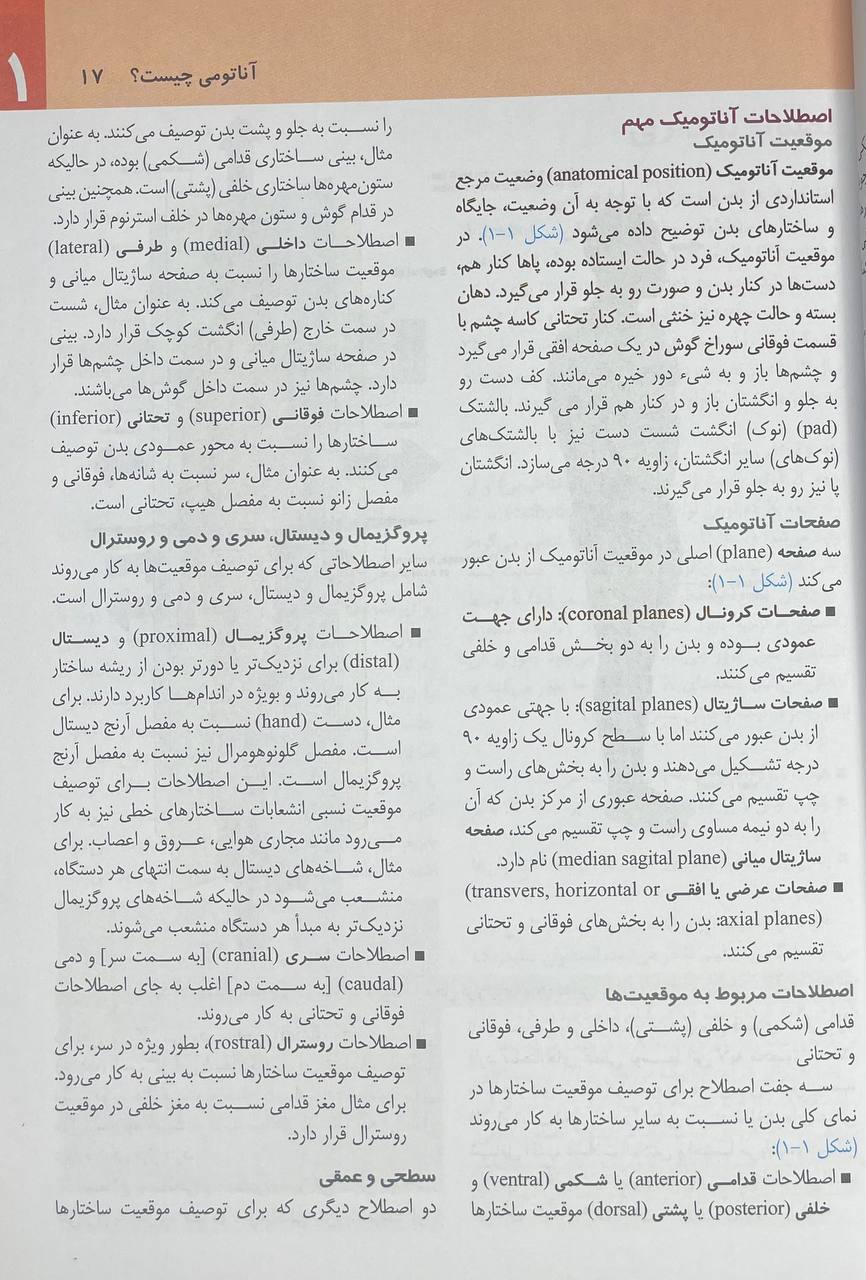 ۱
آناتومی چیست؟ ۱۷
اصطلاحات آناتومیک مهم
موقعیت آناتومیک
موقعیت آناتومیک (anatomical position) وضعیت مرجع
استانداردی از بدن است که با توجه به آن وضعیت، جایگاه
و ساختارهای بدن توضیح داده می‌شود (شکل ۱-۱). در
موقعیت آناتومیک، فرد در حالت ایستاده بوده، پاها کنار هم،
دست‌ها در کنار بدن و صورت رو به جلو قرار می‌گیرد. دهان
بسته و حالت چهره نیز خنثی است. کنار تحتانی کاسه چشم با
قسمت فوقانی سوراخ گوش در یک صفحه افقی قرار می‌گیرد
و چشم‌ها باز و به شیء دور خیره می‌مانند. کف دست رو
به جلو و انگشتان باز و در کنار هم قرار می گیرند. بالشتک
(pad) (نوک) انگشت شست دست نیز با بالشتک‌های
(نوک‌های) سایر انگشتان، زاویه ۹۰ درجه می‌سازد. انگشتان
پا نیز رو به جلو قرار می‌گیرند.
صفحات آناتومیک
سه صفحه (plane) اصلی در موقعیت آناتومیک از بدن عبور
می‌کند (شکل ۱-۱):
■ صفحات کرونال (coronal planes): دارای جهت
عمودی بوده و بدن را به دو بخش قدامی و خلفی
تقسیم می‌کنند.
■ صفحات ساژیتال (sagital planes): با جهتی عمودی
از بدن عبور می‌کنند اما با سطح کرونال یک زاویه ۹۰
درجه تشکیل می‌دهند و بدن را به بخش‌های راست و
چپ تقسیم می‌کنند. صفحه عبوری از مرکز بدن که آن
را به دو نیمه مساوی راست و چپ تقسیم می‌کند، صفحه
ساژیتال میانی (median sagital plane) نام دارد.
■ صفحات عرضی یا افقی (transvers, horizontal or
axial planes): بدن را به بخش‌های فوقانی و تحتانی
تقسیم می‌کنند.
اصطلاحات مربوط به موقعیت‌ها
قدامی (شکمی) و خلفی (پشتی)، داخلی و طرفی، فوقانی
و تحتانی
سه جفت اصطلاح برای توصیف موقعیت ساختارها در
نمای کلی بدن یا نسبت به سایر ساختارها به کار می‌روند
(شکل ۱-۱):
■ اصطلاحات قدامی (anterior) یا شکمی (ventral) و
خلفی (posterior) یا پشتی (dorsal) موقعیت ساختارها
را نسبت به جلو و پشت بدن توصیف می‌کنند. به عنوان
مثال، بینی ساختاری قدامی (شکمی) بوده، در حالیکه
ستون‌مهره‌ها ساختاری خلفی (پشتی) است. همچنین بینی
در قدام گوش و ستون مهره‌ها در خلف استرنوم قرار دارد.
■ اصطلاحات داخلی (medial) و طرفی (lateral)
موقعیت ساختارها را نسبت به صفحه ساژیتال میانی و
کناره‌های بدن توصیف می‌کند. به عنوان مثال، شست
در سمت خارج (طرفی) انگشت کوچک قرار دارد. بینی
در صفحه ساژیتال میانی و در سمت داخل چشم‌ها قرار
دارد. چشم‌ها نیز در سمت داخل گوش‌ها می‌باشند.
■ اصطلاحات فوقانی (superior) و تحتانی (inferior)
ساختارها را نسبت به محور عمودی بدن توصیف
می‌کنند. به عنوان مثال، سر نسبت به شانه‌ها، فوقانی و
مفصل زانو نسبت به مفصل هیپ، تحتانی است.
پروگزیمال و دیستال، سری و دمی و روسترال
سایر اصطلاحاتی که برای توصیف موقعیت‌ها به کار می‌روند
شامل پروگزیمال و دیستال، سری و دمی و روسترال است.
■ اصطلاحات پروگزیمال (proximal) و دیستال
(distal) برای نزدیک‌تر یا دورتر بودن از ریشه ساختار
به کار می‌روند و بویژه در اندام‌ها کاربرد دارند. برای
مثال، دست (hand) نسبت به مفصل آرنج دیستال
است. مفصل گلونوهومرال نیز نسبت به مفصل آرنج
پروگزیمال است. این اصطلاحات برای توصیف
موقعیت نسبی انشعابات ساختارهای خطی نیز به کار
می‌رود مانند مجاری هوایی، عروق و اعصاب. برای
مثال، شاخه‌های دیستال به سمت انتهای هر دستگاه،
منشعب می‌شود در حالیکه شاخه‌های پروگزیمال
نزدیک‌تر به مبدأ هر دستگاه منشعب می‌شوند.
■ اصطلاحات سری (cranial) [به سمت سر] و دمی
(caudal) [به سمت دم] اغلب به جای اصطلاحات
فوقانی و تحتانی به کار می‌روند.
■ اصطلاحات روسترال (rostral)، بطور ویژه در سر، برای
توصیف موقعیت ساختارها نسبت به بینی به کار می‌رود.
برای مثال مغز قدامی نسبت به مغز خلفی در موقعیت
روسترال قرار دارد.
سطحی و عمقی
دو اصطلاح دیگری که برای توصیف موقعیت ساختارها